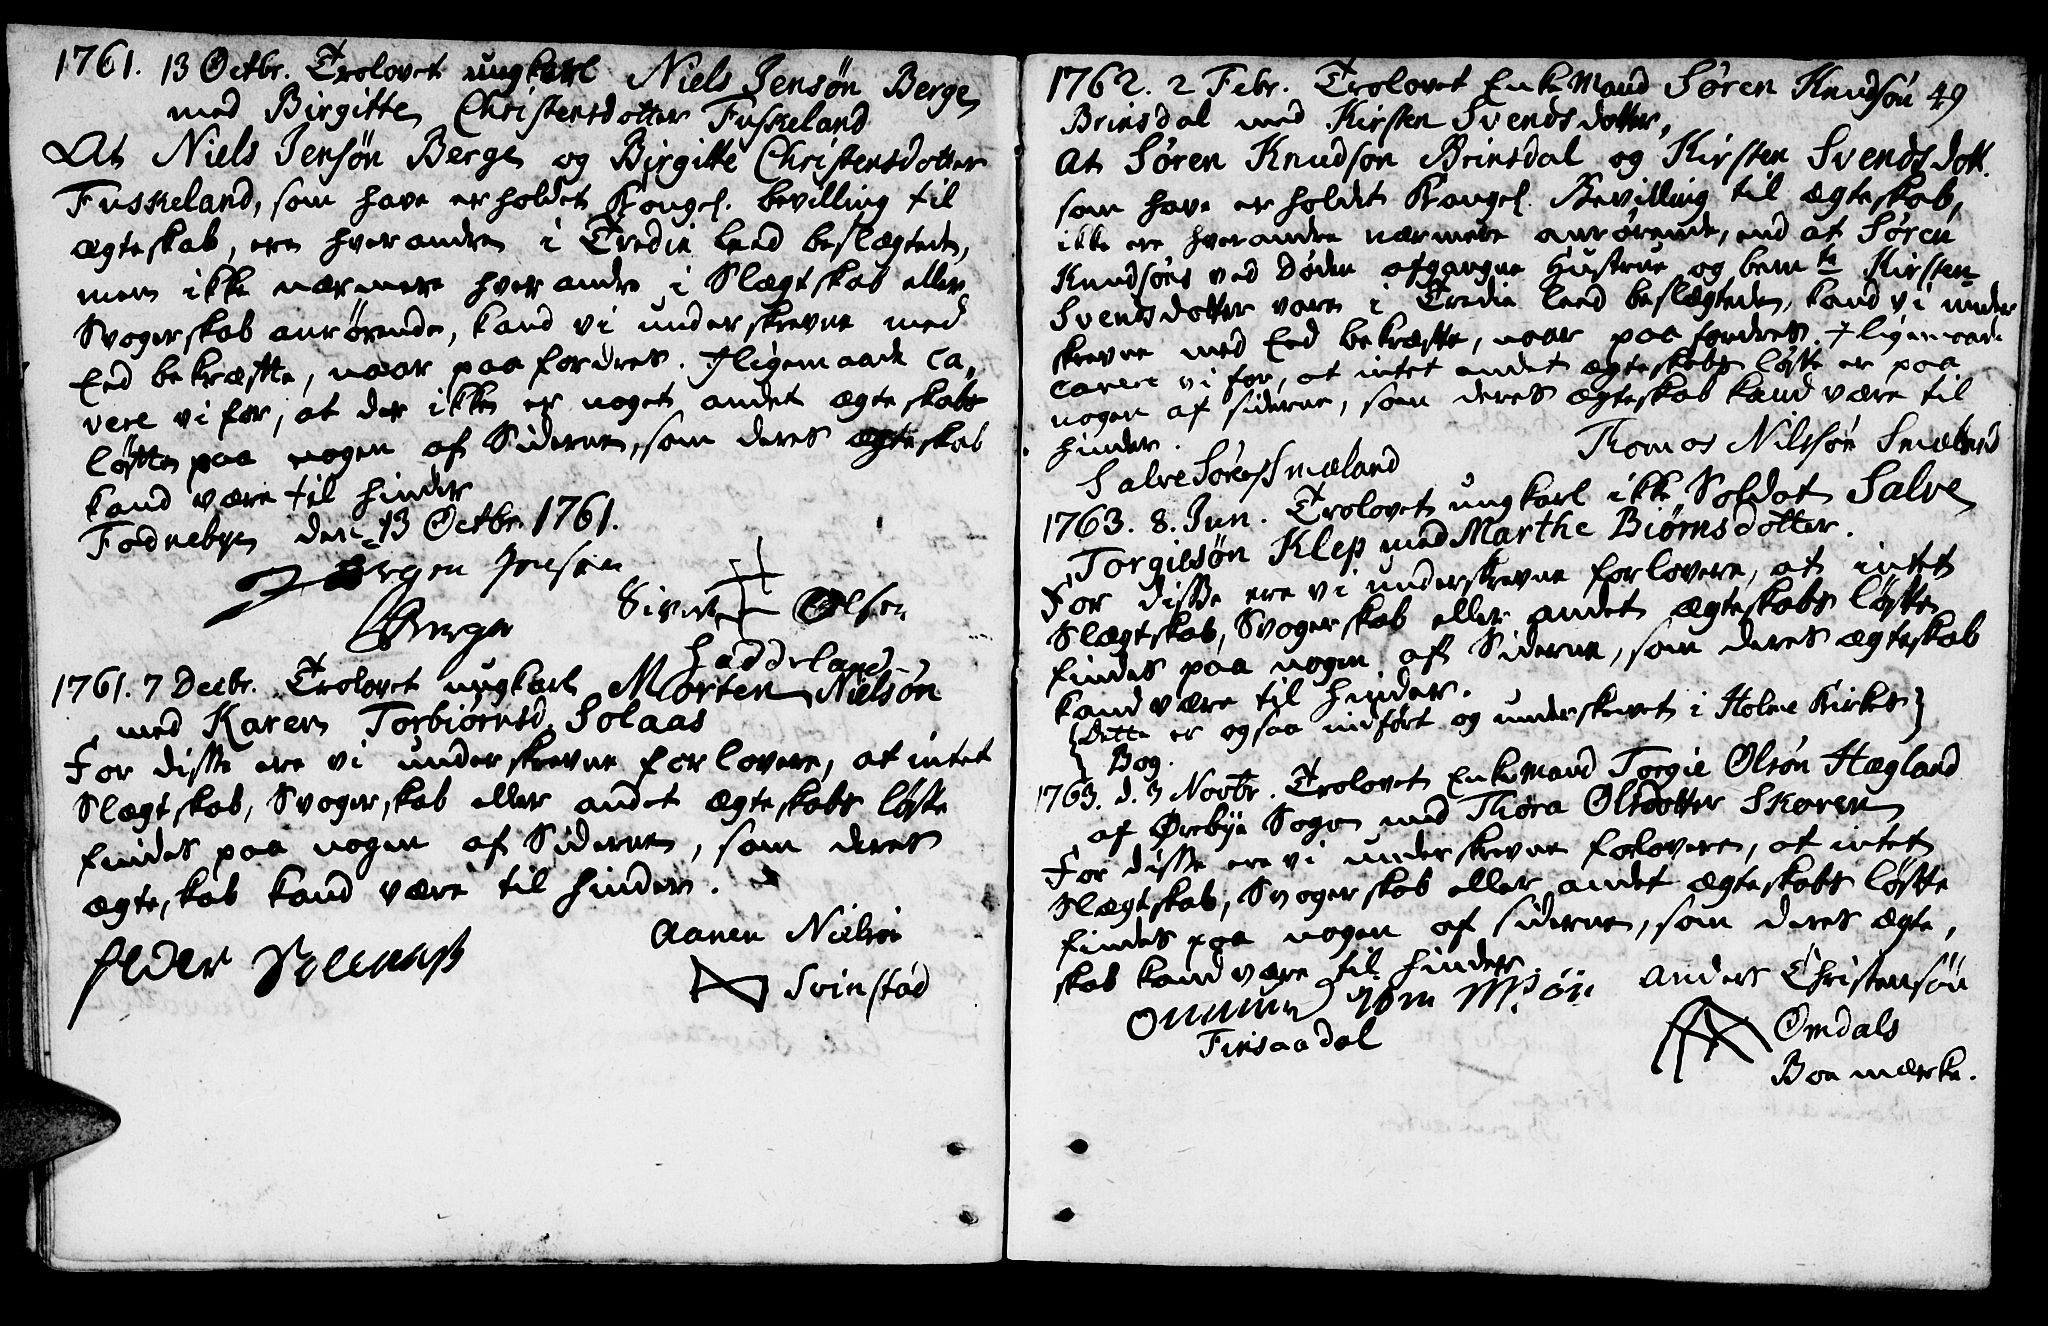 1761. 13 Octbr. Trolovet ungkarl Niels Jensøn Berge
med Birgitte Christensdotter Fuskeland
At Niels Jensøn Berge og Birgitte Christensdotter
Fuskeland, som have erholdet Kongel. bevilling til
ægteskab, ere hverandre i Tredie Leed beslægtede,
men ikke nærmere hverandre i Slægtskab eller
Svogerskab anrørende, kand vi underskrevne med
Eed bekræfte, naar paafordres. Iligemaade ca,
vere vi for, at der ikke er noget andet ægteskabs
løfte paa nogen af Siderne, som deres ægteskab
kand være til hinder
Fodnebye den 13 Octbr. 1761.
Jørgen Jensen
Sivert Olsen
Berge
Haddeland
1761. 7 Decbr. Trolovet ungkarl Morten Nielsøn
med Karen Torbiørnsd. Solaas
For disse ere vi underskrevne forlovere, at intet
Slægtskab, Svogerskab eller andet ægteskabs løfte
findes paa nogen af Siderne, som deres
ægteskab kand være til hinder.
Aanen Nielsøn
Peder
Svinstød
1762. 2 Febr. Trolovet Enkemand Søren Knudsøn 49
Brinsdal med Kirsten Svendsdotter,
At Søren Knudsøn Brinsdal og Kirsten Svendsdott.
som have erholdet Kongel. Bevilling til ægteskab,
ikke ere hverandre nærmere anrørende, end at Søren
Knudsøns ved Døden afgangne Hustrue og bemte Kirsten
Svendsdotter vare i Tredie leed beslægtede, kand vi under
skrevne med Eed bekræfte, naar paafordres. Iligemaade
cavere vi for, at intet andet ægteskabs løfte er paa
nogen af siderne, som deres ægteskab kand være til
hinder.
Thomas Nilssøn Smæland
Salve Sørens. Smæland
1763. 8. Jun. Trolovet ungkarl ikke Soldat Salve
Torgiesøn Klep med Marthe Biørnsdotter.
For disse ere vi underskrevne forlovere, at intet
Slægtskab, Svogerskab eller andet ægteskabs løfte
findes paa nogen af Siderne, som deres ægteskab
kand være til hinder.
{Dette er ogsaa indført og underskrevet i Holme Kirkes}
Bog.
1763. d. 3 Novbr. Trolovet Enkemand Torgie Olsøn Hægland
af Ørebye Sogn med Thora Olsdotter Skaren
For disse ere vi underskrevne forlovere, at intet
Slægtskab, Svogerskab eller andet ægteskabs løfte
findes paa nogen af siderne, som deres ægte,
skab kand være til hinder
Anders Christensøn
Finsaadal
Omdals
Boemærke.